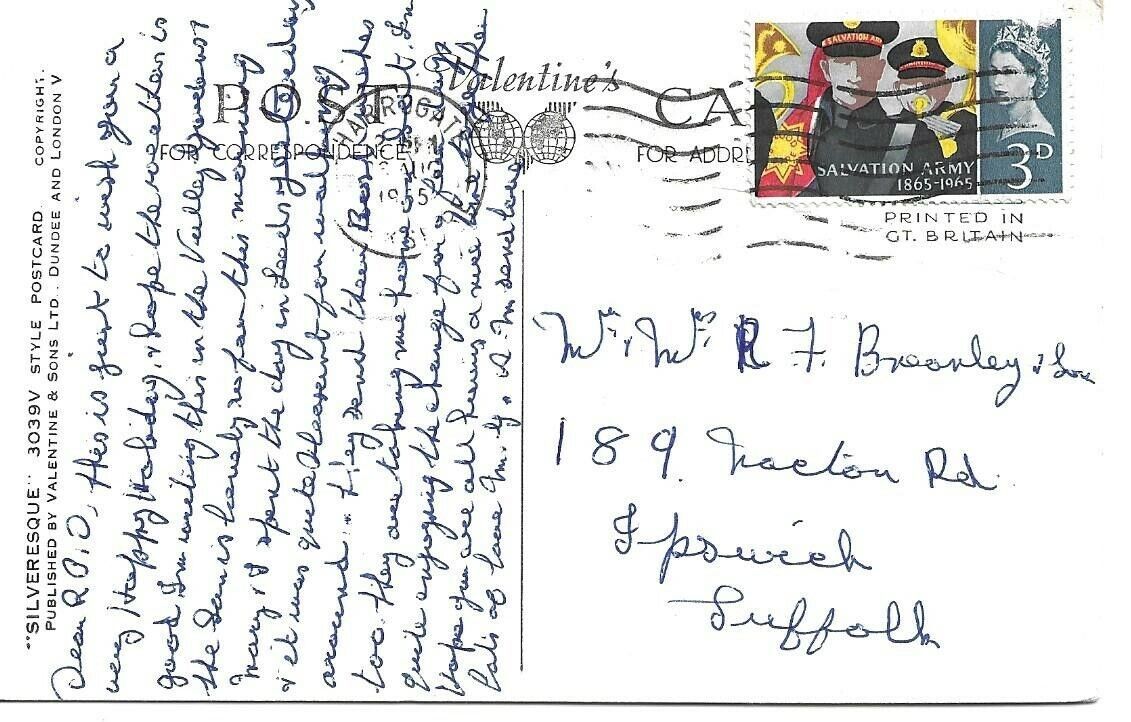 "SILVERESQUE" 3039V STYLE POSTCARD COPYRIGHT.
PUBLISHED BY VALENTINE & SONS LTD. DUNDEE AND LONDON V
POST CA
Valentine's
FOR CORRESPONDENCE
FOR ADDR
HARROGATE
1965
SALVATION ARMY
SALVATION ARMY
1865-1965
3D
PRINTED IN
GT. BRITAIN
Dear R P. O, this is just to wish you a
very Happy Holiday, & hope the weather is
good I'm writing this in the Valley Gardens
the Sun is lovely so far this morning
Mary & I spent the day in Leeds yesterday
& it was quite pleasant for walking
around. They send their Best Wishes
too. they are taking me home on Sat. I'm
quite enjoying the change for a few days
Hope you are all having a nice time together
lots of love M. & A. M. send love
Mr & Mrs R F. Brearley & Son
189. Nacton Rd.
Ipswich
Suffolk